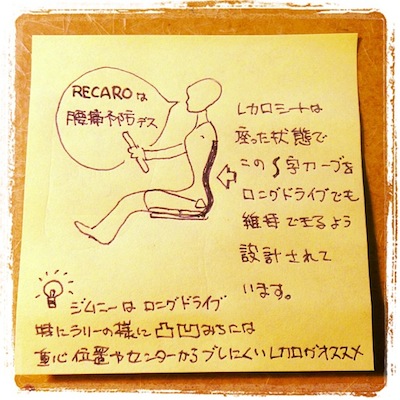 RECAROは
腰痛予防デス
レカロシートは
座った状態で
このS字カーブを
ロングドライブでも
維持できるよう
設計されて
います。
ジムニーはロングドライブ
特にラリーの様に凸凹みちには
重心位置やセンターからブレにくいレカロがオススメ